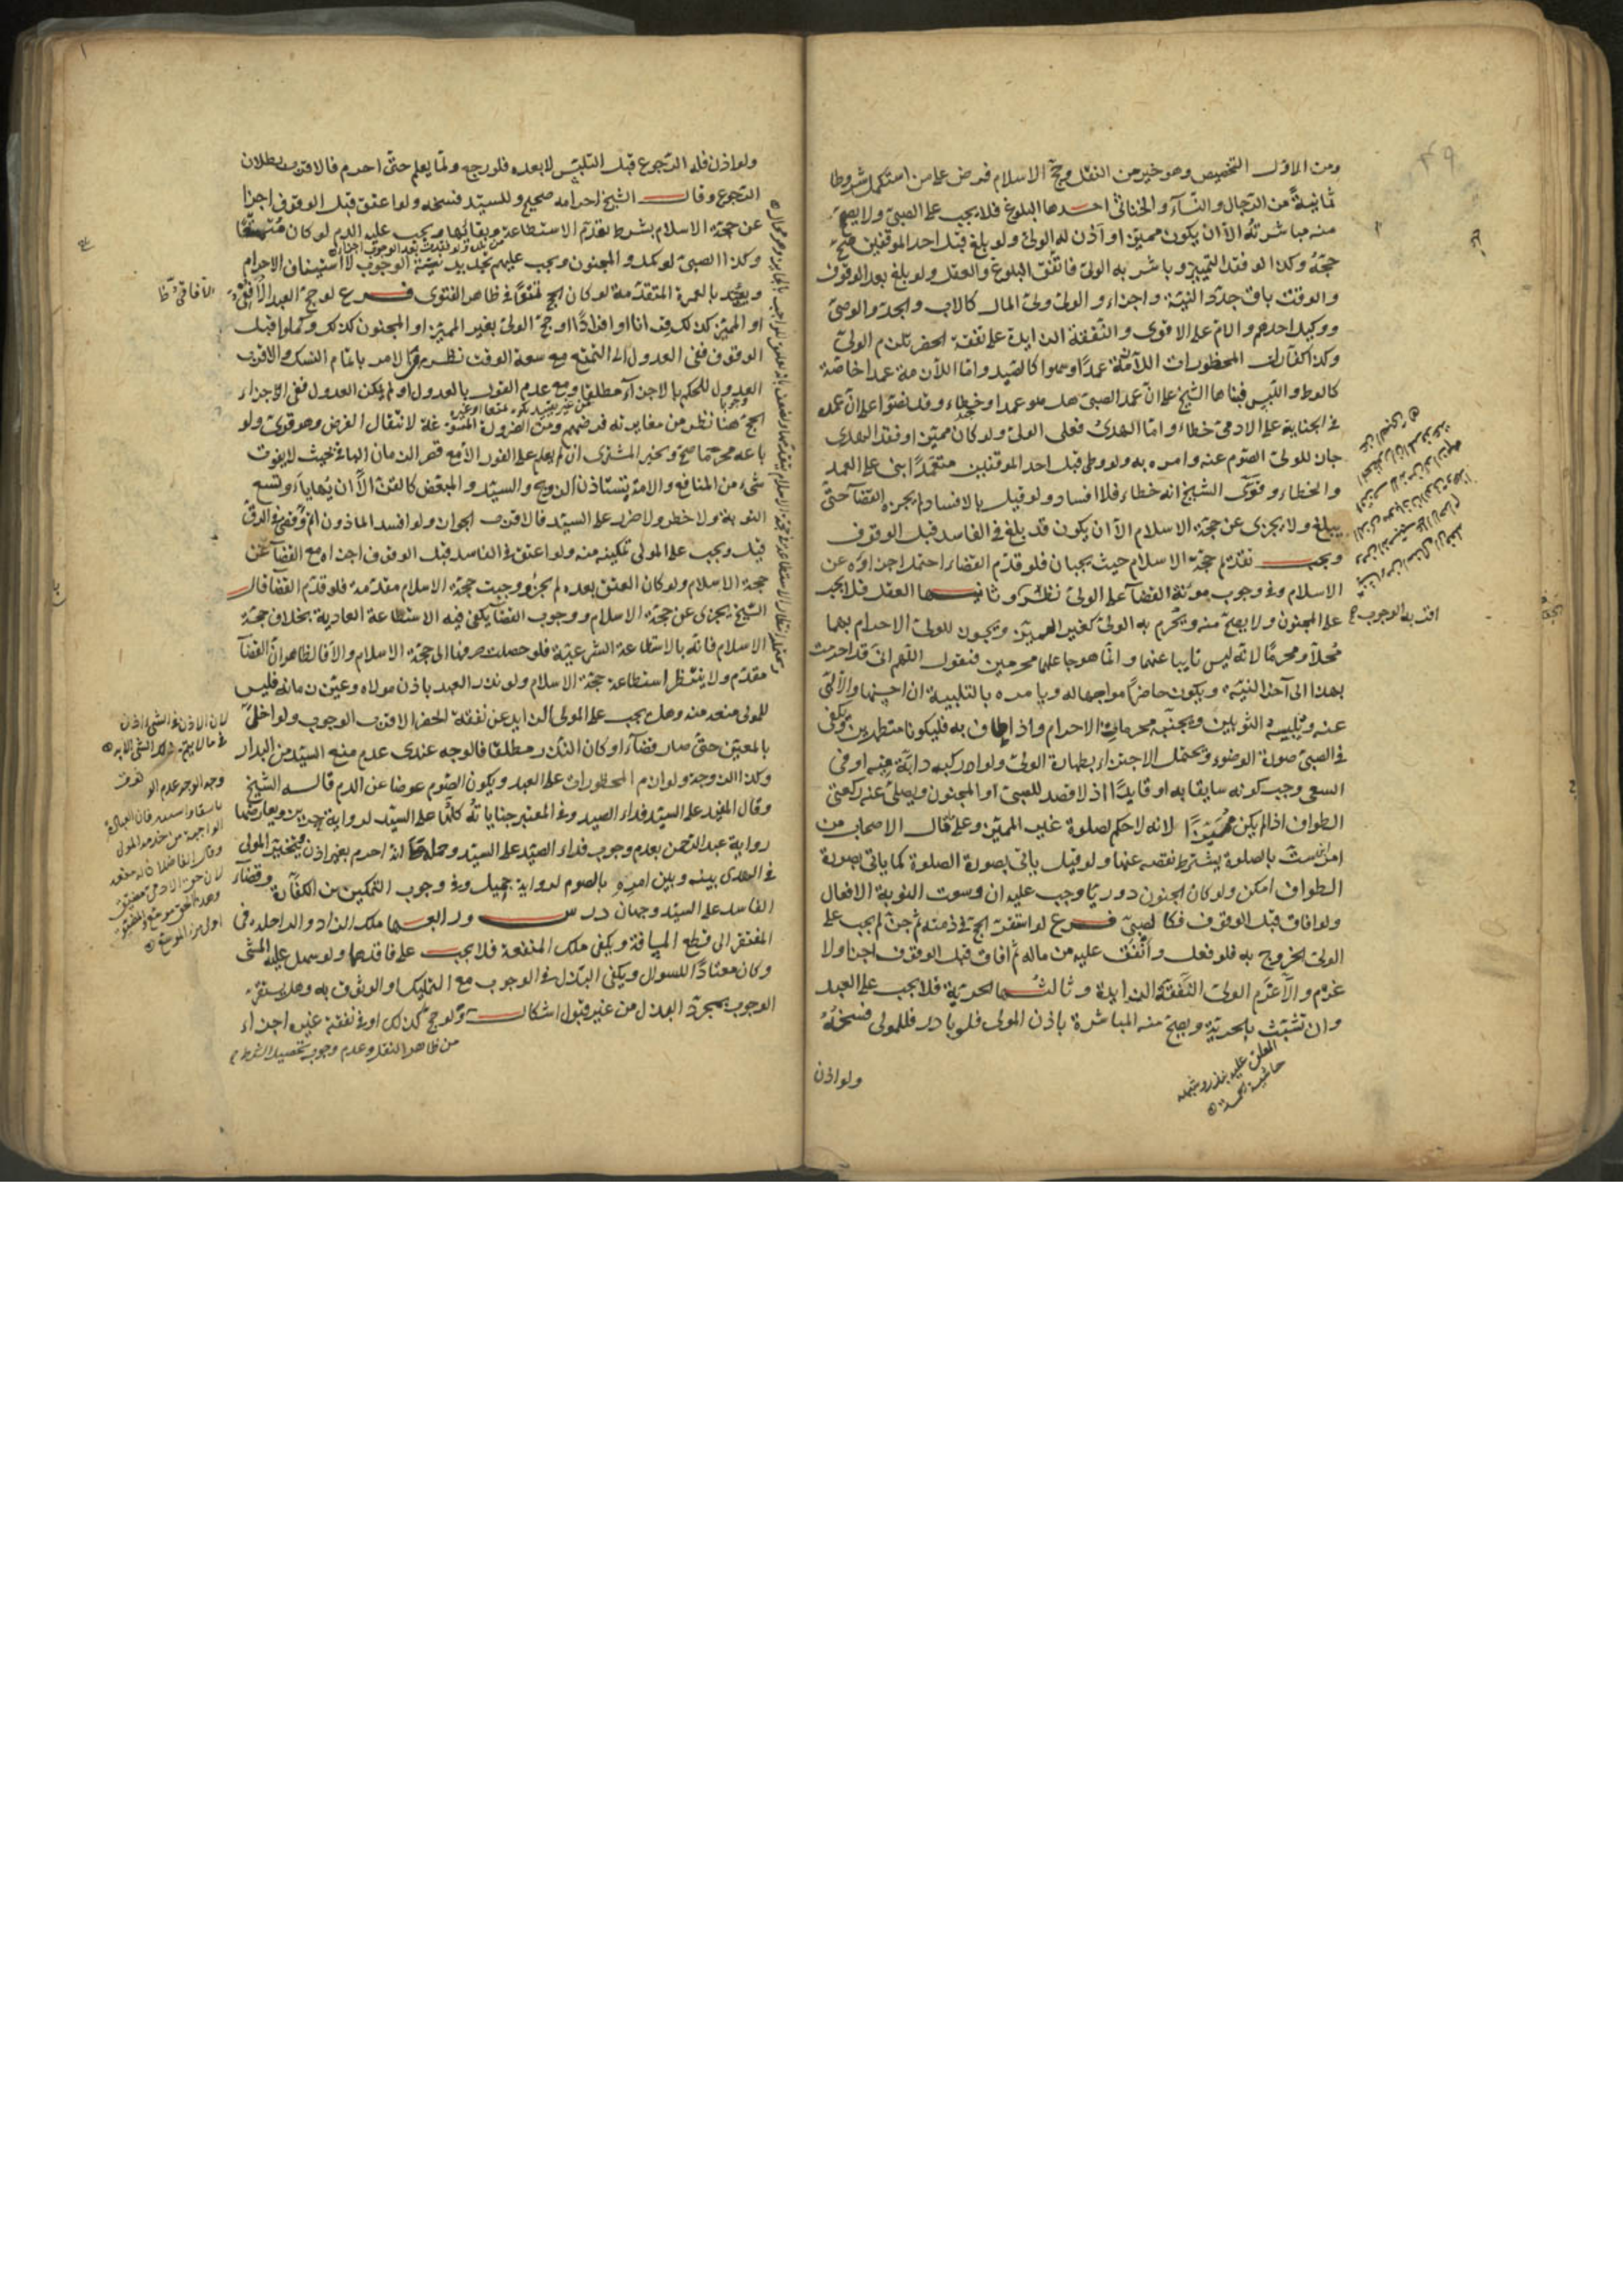 ومن الاول التخصيص وهو خير من النفل وحج الاسلام فرض على من استكمل شروطا
ثمانية من الرجال والنساء والخناثى احدها البلوغ فلا يجب على الصبي ولا يصح
منه مباشرته الا ان يكون مميزا واذن له الولي ولو بلغ قبل احد الموقفين صح
حجه وكذا لو فقد التمييز وباشر به الولي فاتفق البلوغ والعقل ولو بلغ بعد الوقوف
والوقت باق جدد النية واجزاء والولي ولي المال كالاب والجد والوصي
ووكيل احدهم والام على الاقوى والنفقة الزايدة على نفقة الحضر تلزم الولي
وكذا كفارات المحظورات اللازمة عمدا وسهوا كالصيد واما اللازمة عمدا خاصة
كالوطء واللبس فبناها الشيخ على ان عمد الصبي هل هو عمد او خطاء وقد نصوا على ان عمده
في الجناية على الادمي خطاء واما الهدي فعلى الولي ولو كان مميزا وفقد الهدي
جاز للولي الصوم عنه وامره به ولو وطئ قبل احد الموقفين متعمدا بنى على العمد
والخطاء وقوى الشيخ انه خطاء فلا افساد ولو قيل بالافساد لم يجزه القضاء حتى
يبلغ ولا يجزى عن حجة الاسلام الا ان يكون قد بلغ في الفاسد قبل الوقوف
ويجب تقديم حجة الاسلام حيث يجبان فلو قدم القضاء احتمل اجزاؤه عن
الاسلام وفي وجوب مؤنة القضاء على الولي نظر وثانيها العقل فلا يجب
على المجنون ولا يصح منه ويحرم به الولي كغير المميز ويجوز للولي الاحرام بهما
محلا ومحرما لانه ليس نايبا عنهما وانما هو جاعلهما محرمين فيقول اللهم اني قد احرمت
بهذا الى اخر النية ويكون حاضرا مواجها له ويامره بالتلبية ان احسنها والا لبى
عنه ويلبسه الثوبين ويجنبه محرمات الاحرام واذا طاف به فليكونا متطهرين ويكفى
في الصبي صورة الوضوء ويحتمل الاجتزاء بطهارة الولي ولو اركبه دابة فيه او في
السعي وجب كونه سايقا به او قايدا اذ لا قصد للصبي او المجنون ويصلى عنه ركعتي
الطواف اذا لم يكن مميزا لانه لا حكم لصلوة غير المميز وعلى ما قال الاصحاب من
امر ابن ست بالصلوة يشترط نقصه عنها ولو قيل ياتي بصورة الصلوة كما ياتي بصورة
الطواف امكن ولو كان الجنون دوريا وجب عليه ان وسعت النوبة الافعال
ولو افاق قبل الوقوف فكالصبي فرع لو استقر الحج في ذمته ثم جن لم يجب على
الولي الخروج به فلو فعل وانفق عليه من ماله ثم افاق قبل الوقوف اجزا ولا
غرم والا غرم الولي النفقة الزايدة وثالثها الحرية فلا يجب على العبد
وان تشبث بالحرية ويصح منه المباشرة باذن المولى فلو بادر فللمولى فسخه
ولو اذن
ولو اذن فله الرجوع قبل التلبس لا بعده فلو رجع ولما يعلم حتى احرم فالاقرب بطلان
الرجوع وقال الشيخ احرامه صحيح وللسيد فسخه ولو اعتق قبل الوقوف اجزا
عن حجة الاسلام بشرط تقدم الاستطاعة وبقائها ويجب عليه الدم لو كان متمتعا
وكذا الصبي لو كمل والمجنون ويجب عليهم تجديد نية الوجوب لا استيناف الاحرام
ويعتد بالعمرة المتقدمة لو كان الحج تمتعا في ظاهر الفتوى فرع لو حج العبد الافقي
الآفاقي ظ
او المميز كذلك قرانا او افرادا او حج الولي بغير المميز او المجنون كذلك وكملوا قبل
الوقوف ففي العدول الى التمتع مع سعة الوقت نظر من الامر باتمام النسك والاقرب
العدول للحكم بالاجزاء مطلقا ومع عدم القول بالعدول او لم يمكن العدول ففي الاجزاء
الحج هنا نظر من مغايرته فرضهم ومن الضرورة المسوغة لانتقال الفرض وهو قوى ولو
باعه محرما صح ويخير المشتري ان لم يعلم على الفور الا مع قصر الزمان الباقي بحيث لا يفوت
شيء من المنافع والامة تستاذن الزوج والسيد والمبعض كالقن الا ان يهايا وتسع
النوبة ولا خطر ولا ضرر على السيد فالاقرب الجواز ولو افسد الماذون اتم وقضى في الرق
قيل ويجب على المولى تمكينه منه ولو اعتق في الفاسد قبل الوقوف اجزاه مع القضاء عن
حجة الاسلام ولو كان العتق بعده لم يجز ووجبت حجة الاسلام مقدمة فلو قدم القضا قال
الشيخ يجزى عن حجة الاسلام ووجوب القضا يكفى فيه الاستطاعة العادية بخلاف حجة
الاسلام فانه بالاستطاعة الشرعية فلو حصلت صرفنا الى حجة الاسلام والا فالظاهر ان القضا
مقدم ولا ينتظر استطاعة حجة الاسلام ولو نذر العبد باذن مولاه وعين زمانه فليس
للمولى منعه منه وهل يجب على المولى الزايد عن نفقة الحضر الاقرب الوجوب ولو اخل
بالمعين حتى صار قضاء او كان النذر مطلقا فالوجه عندى عدم منع السيد من البدار
وكذا الزوجة ولوازم المحظورات على العبد ويكون الصوم عوضا عن الدم قاله الشيخ
وقال المفيد على السيد فداء الصيد وفي المعتبر جناياته كلها على السيد لرواية حريز ويعارضها
رواية عبد الرحمن بعدم وجوب فداء الصيد على السيد وحملها انه احرم بغير اذن ويتخير المولى
في الهدى بينه وبين امره بالصوم لرواية جميل وفي وجوب التمكين من الكفارة وقضاء
الفاسد على السيد وجهان درس ورابعها ملك الزاد والراحلة في
المفتقر الى قطع المسافة ويكفى ملك المنفعة فلا يجب على فاقدهما ولو سهل عليه المشي
وكان معتادا للسوال ويكفى البذل في الوجوب مع التمليك او الوثوق به وهل يستقر
الوجوب بمجرد البذل من غير قبول اشكال ولو حج كذلك او في نفقة غيره اجزاء
من ظاهر النقل وعدم وجوب تحصيل الشرط